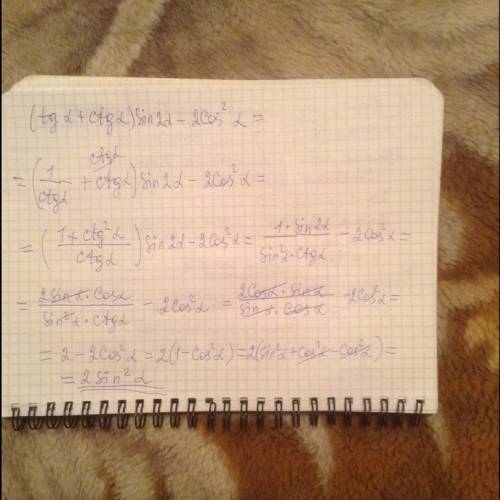 (tg α + ctg α) sin 2α − 2cos² α =
= (1/ctg α + ctg α/ctg α) sin 2α − 2cos² α =
= ((1 + ctg² α)/ctg α) sin 2α − 2cos² α = (1 · sin 2α)/(sin² α · ctg α) − 2cos² α =
= (2 sin α · cos α)/(sin² α · ctg α) − 2cos² α = (2cos α · sin α)/(sin α · cos α) − 2cos² α =
= 2 − 2cos² α = 2(1 − cos² α) = 2(sin² α + cos² α − cos² α) =
= 2 sin² α